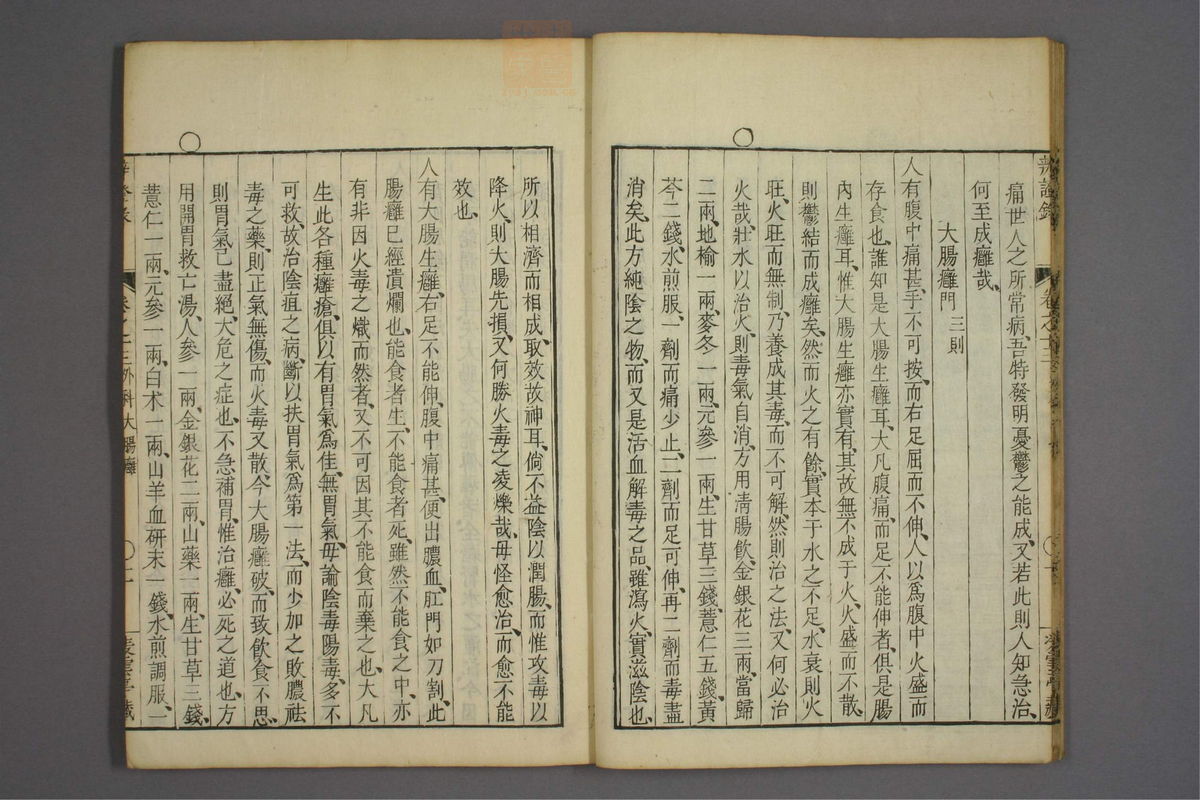 痛世人之所常病、吾特發明憂鬱之能成、又若此則人知急治、
何至成癰哉、
大腸癰門 三則
人有腹中痛甚、手不可按、而右足屈而不伸、人以爲腹中火盛而
存食也、誰知是大腸生癰耳、大凡腹痛、而足不能伸者、俱是腸
內生癰耳、惟大腸生癰亦實有其故、無不成于火、火盛而不散、
則鬱結而成癰矣、然而火之有餘、實本于水之不足、水衰則火
旺、火旺而無制、乃養成其毒、而不可解、然則治之法、又何必治
火哉、壯水以治火、則毒氣自消、方用淸腸飲、金銀花三兩、當歸
二兩、地榆一兩、麥冬一兩、元參一兩、生甘草三錢、薏仁五錢、黃
芩二錢、水煎服、一劑而痛少止、二劑而足可伸、再二劑而毒盡
消矣、此方純陰之物、而又是活血解毒之品、雖瀉火、實滋陰也、
所以相濟而相成、取效故神耳、倘不益陰以潤腸、而惟攻毒以
降火、則大腸先損、又何勝火毒之凌爍哉、毋怪愈治、而愈不能
效也、
人有大腸生癰、右足不能伸、腹中痛甚、便出膿血、肛門如刀割、此
腸癰已經潰爛也、能食者生、不能食者死、雖然不能食之中、亦
有非因火毒之熾而然者、又不可因其不能食而棄之也、大凡
生此各種癰瘡、俱以有胃氣爲佳、無胃氣、毋論陰毒陽毒、多不
可救、故治陰疽之病、斷以扶胃氣爲第一法、而少加之敗膿祛
毒之藥、則正氣無傷、而火毒又散、今大腸癰破、而致飲食不思、
則胃氣已盡絕、大危之症也、不急補胃、惟治癰、必死之道也、方
用開胃救亡湯、人參一兩、金銀花二兩、山藥一兩、生甘草三錢、
薏仁一兩、元參一兩、白术一兩、山羊血硏末一錢、水煎調服、一
卷之十三外科大腸癰